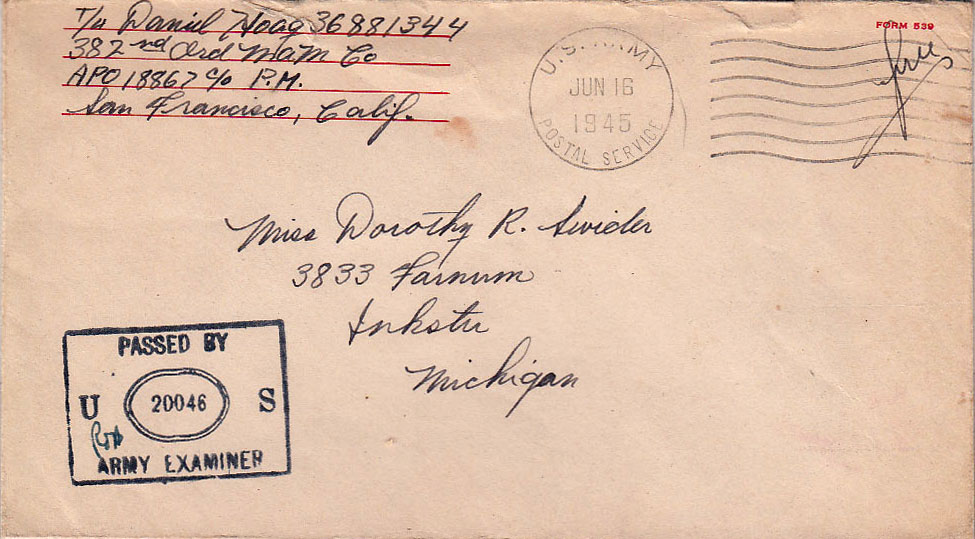 T/4 Daniel Hoag 36881344
382nd Ord MAM Co
APO 18867 c/o P.M.
San Francisco, Calif.
FORM 539
Free
U.S. ARMY
JUN 16
1945
POSTAL SERVICE
Miss Dorothy R. Swider
3833 Farnum
Inkster
Michigan
PASSED BY
U 20046 S
ARMY EXAMINER